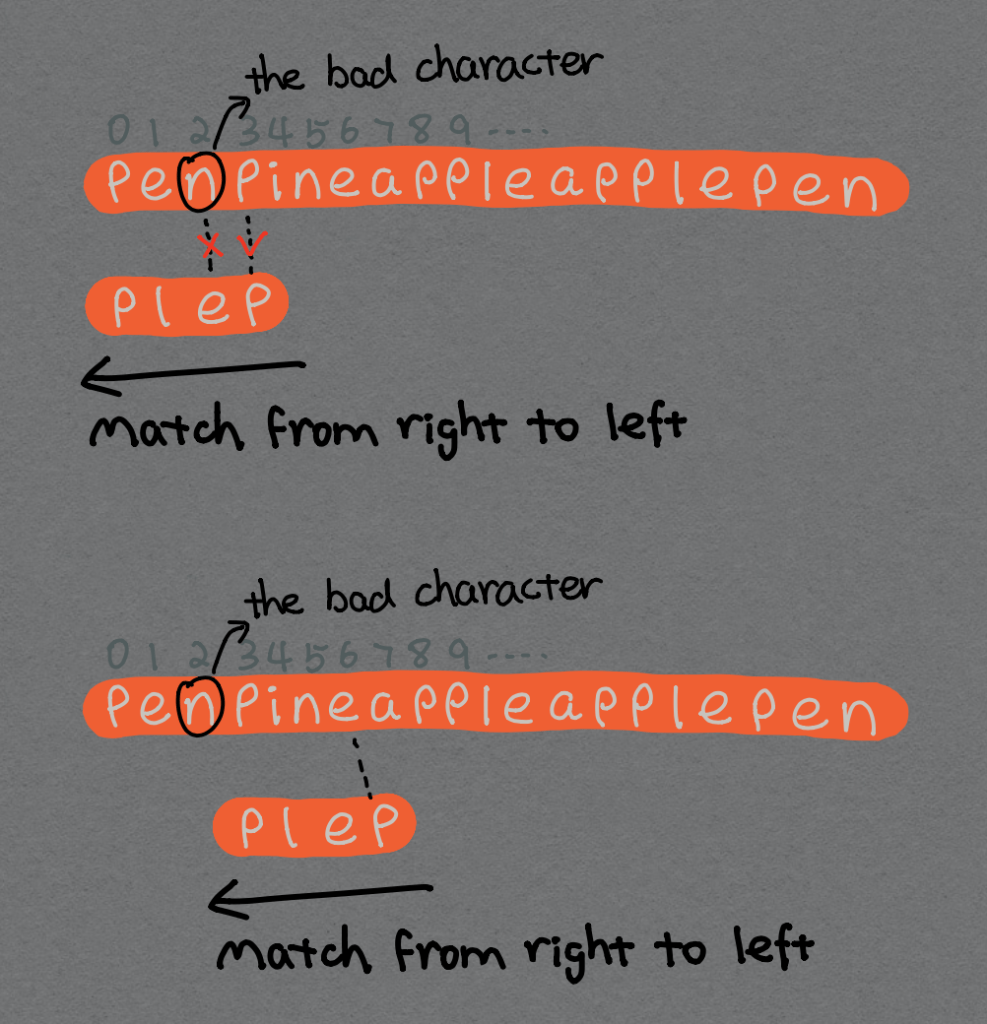 the bad character
0 1 2 3 4 5 6 7 8 9 ....
PenPineappleapplePen
x v
PleP
Match from right to left
the bad character
0 1 2 3 4 5 6 7 8 9 ....
PenPineappleapplePen
PleP
Match from right to left